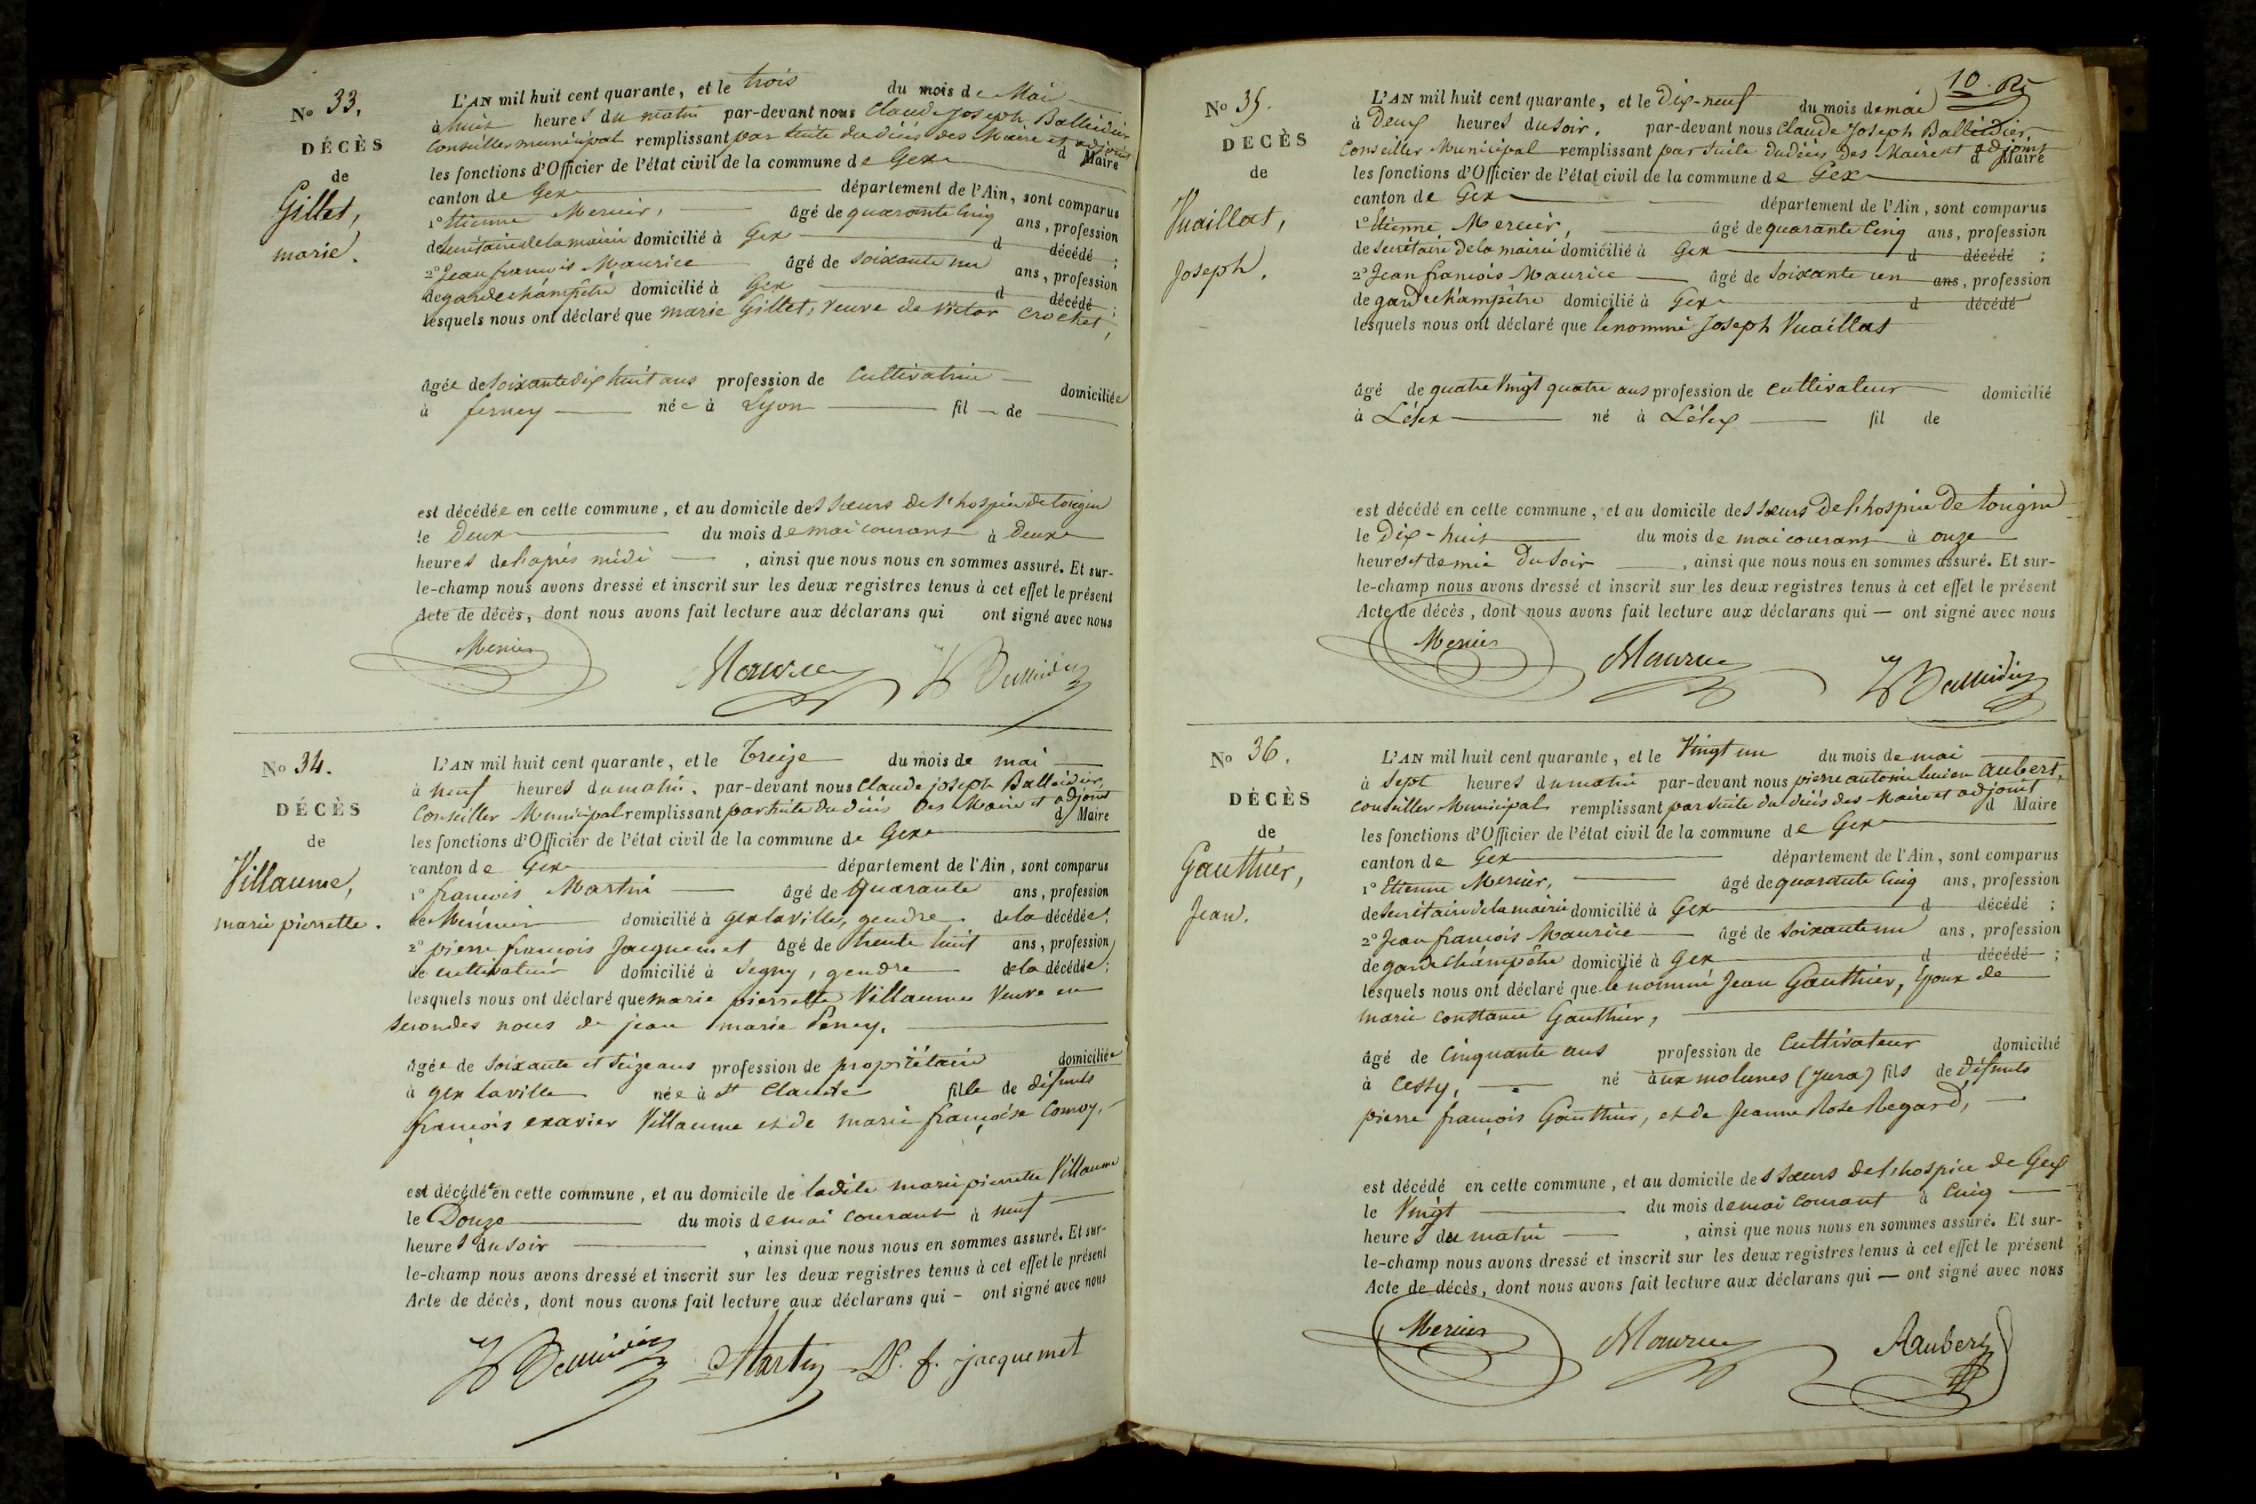 No 33.
DÉCÈS
de
Gillet,
marie.
L'AN mil huit cent quarante, et le trois du mois de Mai
à huit heures du matin par-devant nous Claude Joseph Balleidier
Conseiller municipal remplissant par suite du décès des Maire et adjoint d Maire
les fonctions d'Officier de l'état civil de la commune de Gex
canton de Gex département de l'Ain, sont comparus
1º Etienne Mercier, âgé de quarante cinq ans, profession
de secrétaire de la mairie domicilié à Gex d décédé ;
2º Jean françois Maurice âgé de soixante un ans, profession
de garde champêtre domicilié à Gex d décédé ;
lesquels nous ont déclaré que marie Gillet, veuve de victor crochet,
âgée de soixante dix huit ans profession de cultivatrice domiciliée
à ferney née à Lyon fil de
est décédée en cette commune, et au domicile des sœurs de l'hospice de tougin
le deux du mois de mai courant à deux
heures de l'après midi , ainsi que nous nous en sommes assuré. Et sur-
le-champ nous avons dressé et inscrit sur les deux registres tenus à cet effet le présent
Acte de décès, dont nous avons fait lecture aux déclarans qui ont signé avec nous
Mercier Maurice Balleidier
No 34.
DÉCÈS
de
Villaume,
marie pierrette.
L'AN mil huit cent quarante, et le treize du mois de mai
à neuf heures du matin. par-devant nous Claude joseph Balleidier,
Conseiller Municipal remplissant par suite du décès des Maire et adjoint d Maire
les fonctions d'Officier de l'état civil de la commune de Gex
canton de Gex département de l'Ain, sont comparus
1º françois Martin âgé de quarante ans, profession
de Meunier domicilié à gex la ville, gendre de la décédée ;
2º pierre françois Jacquemet âgé de trente huit ans, profession
de cultivateur domicilié à Segny, gendre de la décédée ;
lesquels nous ont déclaré que marie pierrette Villaume Veuve en
secondes noces de jean marie Perrey.
âgée de soixante et seize ans profession de propriétaire domiciliée
à gex la ville née à St Claude fille de défunts
françois exavier Villaume et de marie françoise Comoy,
est décédée en cette commune, et au domicile de ladite marie pierrette Villaume
le Douze du mois de mai courant à neuf
heures du soir , ainsi que nous nous en sommes assuré. Et sur-
le-champ nous avons dressé et inscrit sur les deux registres tenus à cet effet le présent
Acte de décès, dont nous avons fait lecture aux déclarans qui ont signé avec nous
Balleidier Martin P. f. jacquemet
10.
No 35.
DÉCÈS
de
Vuaillat,
Joseph.
L'AN mil huit cent quarante, et le Dix-neuf du mois de mai
à Deux heures du soir. par-devant nous Claude Joseph Balleidier,
Conseiller Municipal remplissant par suite du décès des Maire et adjoint d Maire
les fonctions d'Officier de l'état civil de la commune de Gex
canton de Gex département de l'Ain, sont comparus
1º Etienne Mercier, âgé de quarante cinq ans, profession
de secrétaire de la mairie domicilié à Gex d décédé ;
2º Jean françois Maurice âgé de soixante un ans, profession
de garde champêtre domicilié à Gex d décédé
lesquels nous ont déclaré que le nommé Joseph Vuaillat
âgé de quatre vingt quatre ans profession de cultivateur domicilié
à Lélex né à Lélex fil de
est décédé en cette commune, et au domicile des sœurs de l'hospice de tougin
le Dix-huit du mois de mai courant à onze
heures et demie du soir , ainsi que nous nous en sommes assuré. Et sur-
le-champ nous avons dressé et inscrit sur les deux registres tenus à cet effet le présent
Acte de décès, dont nous avons fait lecture aux déclarans qui ont signé avec nous
Mercier Maurice Balleidier
No 36.
DÉCÈS
de
Gauthier,
Jean.
L'AN mil huit cent quarante, et le Vingt un du mois de mai
à sept heures du matin par-devant nous pierre antoine lucien Aubert,
Conseiller Municipal remplissant par suite du décès des Maire et adjoint d Maire
les fonctions d'Officier de l'état civil de la commune de Gex
canton de Gex département de l'Ain, sont comparus
1º Etienne Mercier, âgé de quarante cinq ans, profession
de secrétaire de la mairie domicilié à Gex d décédé ;
2º Jean françois Maurice âgé de soixante un ans, profession
de garde champêtre domicilié à Gex d décédé ;
lesquels nous ont déclaré que le nommé Jean Gauthier, époux de
marie constance Gauthier,
âgé de cinquante ans profession de Cultivateur domicilié
à Cessy, né aux molunes (Jura) fils de défunts
pierre françois Gauthier, et de Jeanne Rose Regard,
est décédé en cette commune, et au domicile des sœurs de l'hospice de Gex
le Vingt du mois de mai courant à cinq
heures du matin , ainsi que nous nous en sommes assuré. Et sur-
le-champ nous avons dressé et inscrit sur les deux registres tenus à cet effet le présent
Acte de décès, dont nous avons fait lecture aux déclarans qui ont signé avec nous
Mercier Maurice Aubert